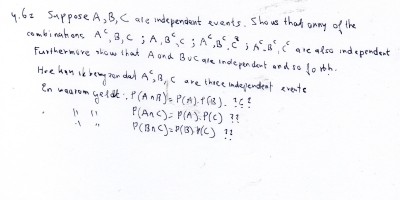 4.62 Suppose A, B, C are independent events. Shows that anny of the
combinations A^c, B, C ; A, B^c, C ; A^c, B^c, C ; A^c, B^c, C^c are also independent
Furthermore show that A and B∪C are independent and so forth.
Hoe kan ik bewijzen dat A^c, B, C are three independent events
En waarom geldt: P(A∩B) = P(A).P(B). ???
" " " P(A∩C) = P(A).P(C) ??
" " P(B∩C) = P(B) P(C) ??